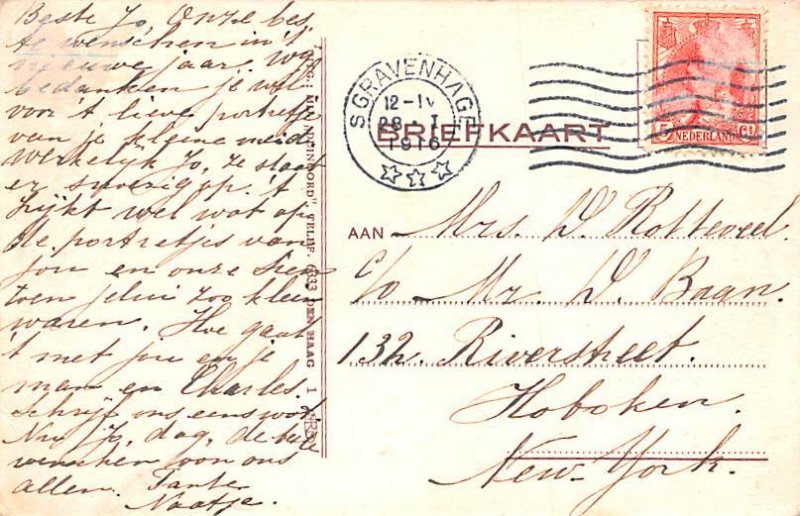 Beste Jo, Onze bes
te wenschen in 't
nieuwe jaar. Wij
bedanken je wel
voor 't lieve portretje
van je kleine meid.
Werkelijk Jo, ze staat
er snoezig op. 't
Lijkt wel wat op
de portretjes van
jou en onze Sien
toen jelui zoo klein
waren. Hoe gaat
't met jou en je
man en Charles.
Schrijf ons eens wat.
Nu Jo, dag, de beste
wenschen van ons
allen. Tante
Naatje.
DEN HAAG
'S GRAVENHAGE
12-IV
28 . I
1916
NEDERLAND
5 Ct
BRIEFKAART
AAN Mrs. D. Rotteveel.
c/o Mr. D. Baan.
132. Riverstreet.
Hoboken.
New-York.